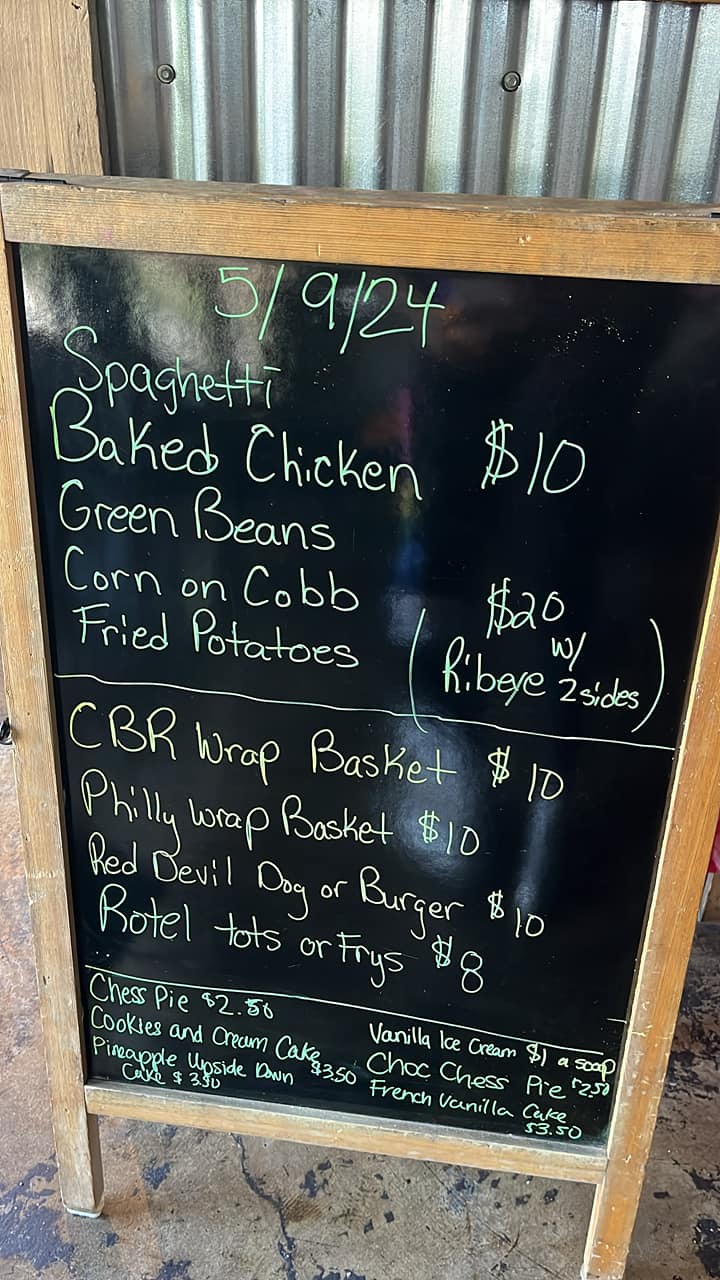 5/9/24
Spaghetti
Baked Chicken $10
Green Beans
Corn on Cobb
Fried Potatoes
($20
w/
Ribeye 2 sides)
CBR Wrap Basket $10
Philly Wrap Basket $10
Red Devil Dog or Burger $10
Rotel tots or Frys $8
Chess Pie $2.50
Cookies and Cream Cake
$3.50
Pineapple Upside Down
Cake $3.50
Vanilla Ice Cream $1 a scoop
Choc Chess Pie $2.50
French Vanilla Cake
$3.50